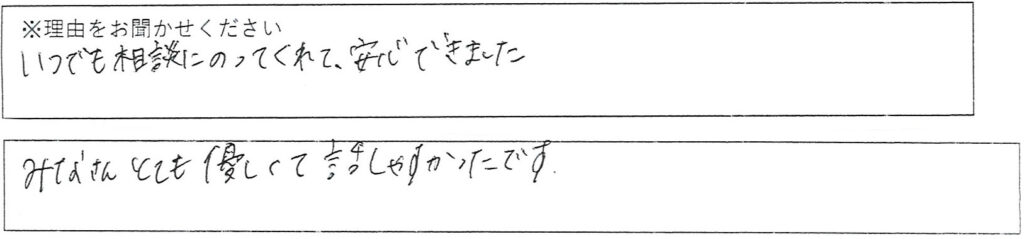 ※理由をお聞かせください
いつでも相談にのってくれて、安心できました
みなさんとても優しくて話しやすかったです.